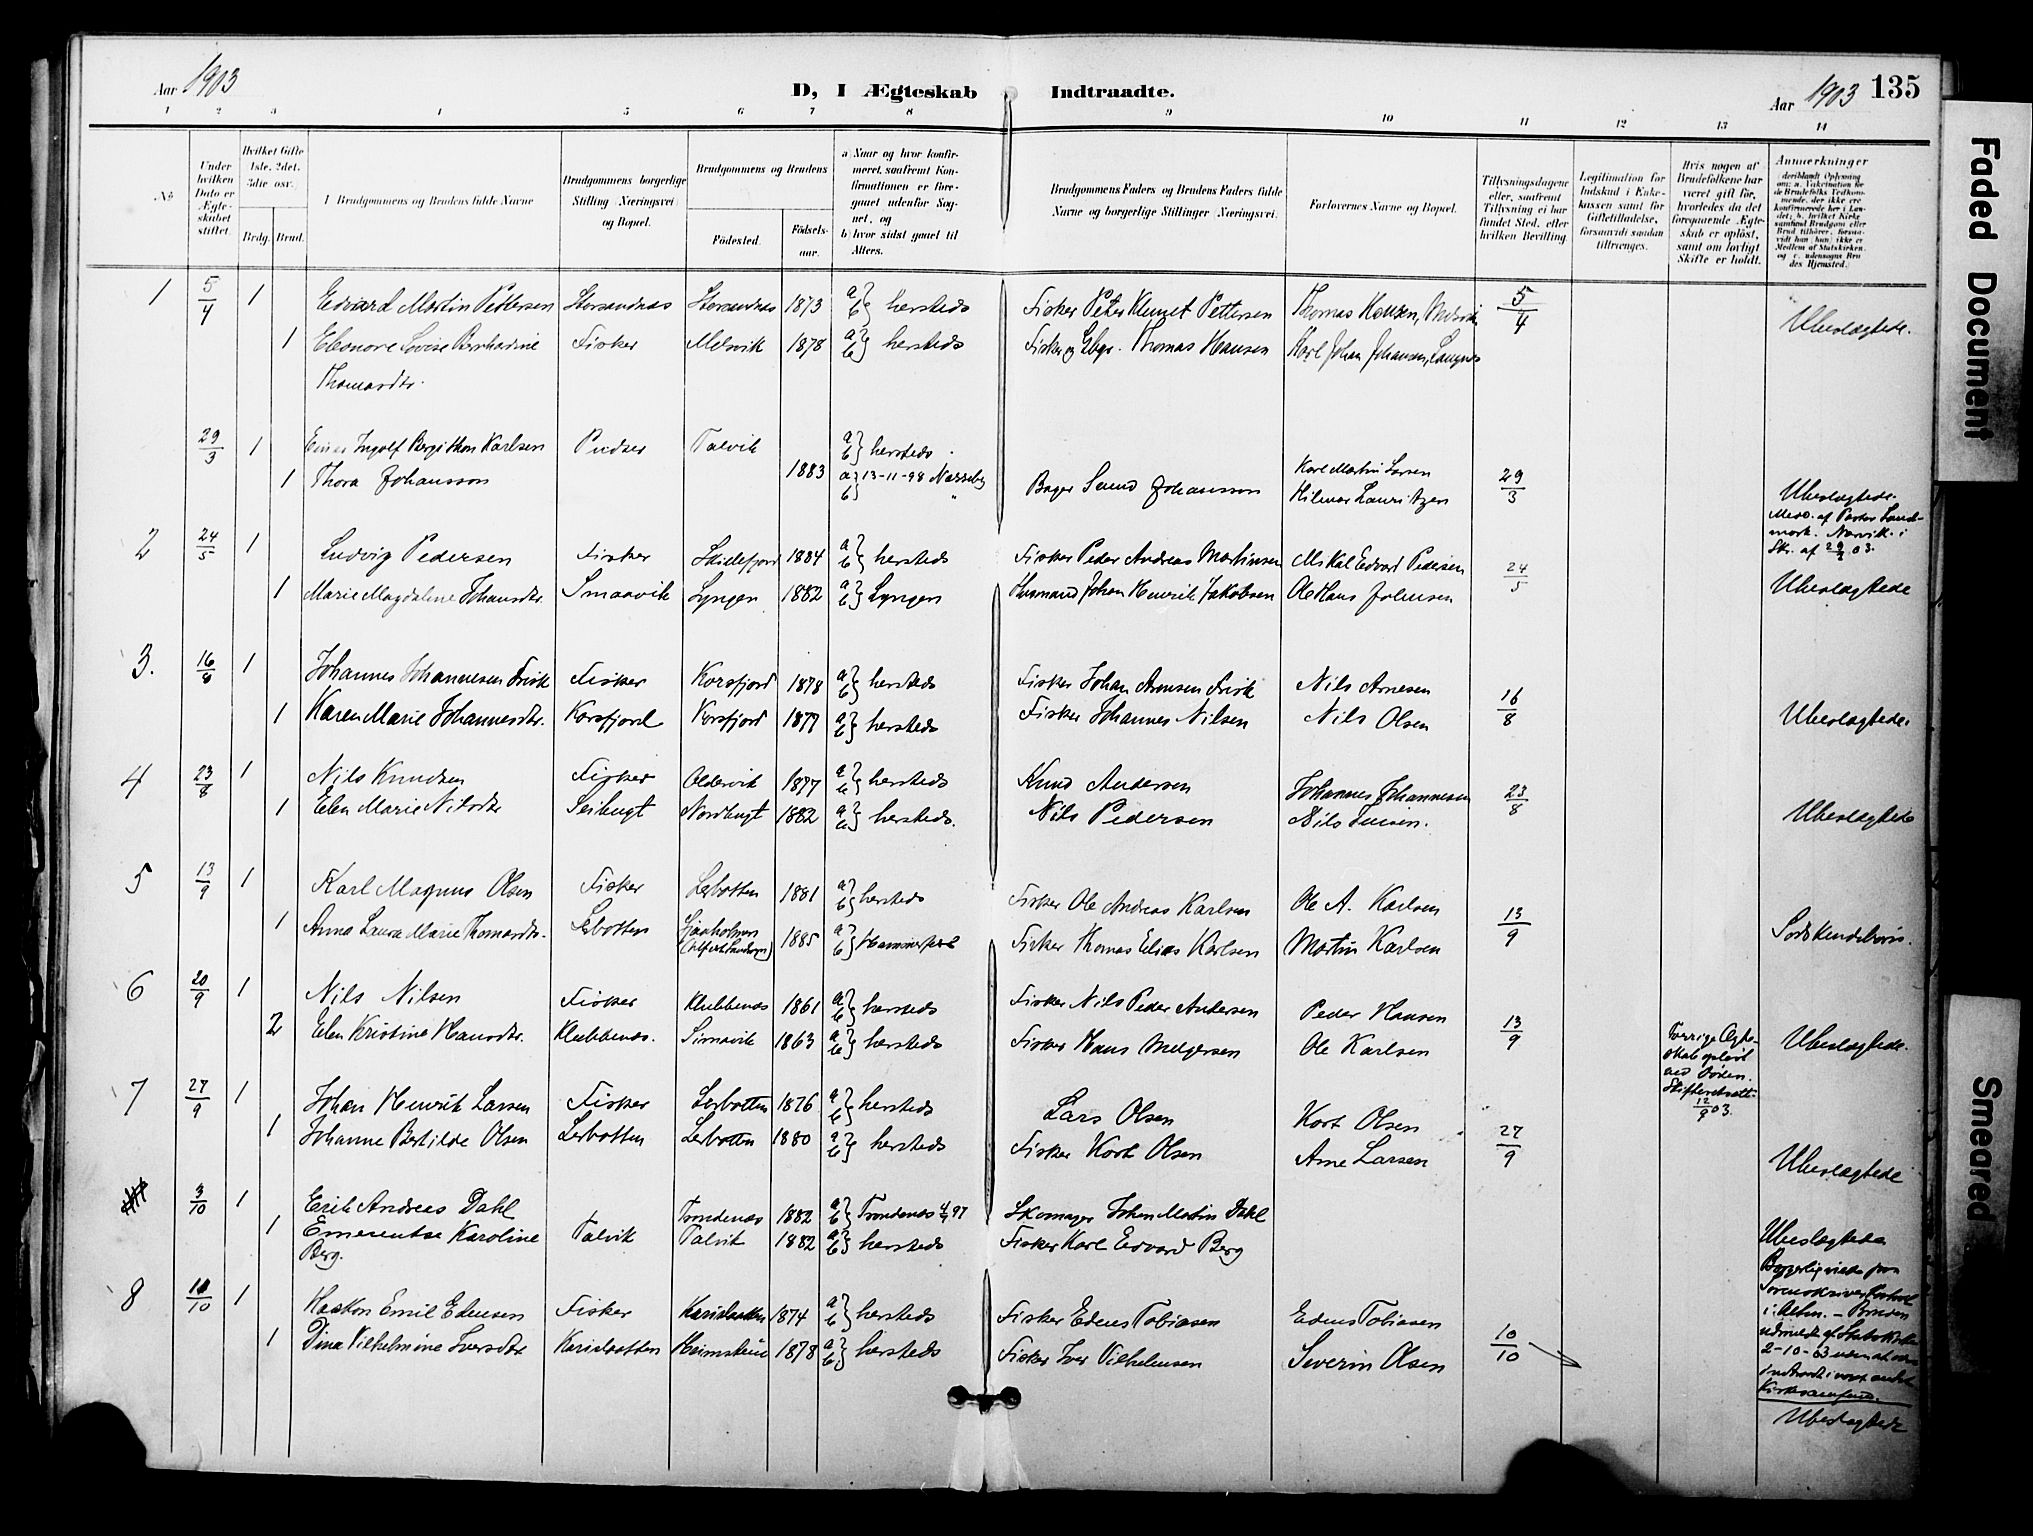 Aar 1903
D, I Ægteskab Indtraadte.
Aar 1903 135
1 2 3 4 5 6 7 8 9 10 11 12 13 14
No
Under hvilken Dato er Ægteskabet stiftet.
Hvilket Gifte 1ste, 2det, 3die osv.
Brdg. Brud.
I Brudgommens og Brudens fulde Navne
Brudgommens borgerlige Stilling Næringsvei og Bopæl.
Brudgommens og Brudens
Födested. Födselsaar.
a) Naar og hvor konfirmeret, saafremt Konfirmationen er foregaaet udenfor Sognet, og
b) hvor sidst gaaet til Alters.
Brudgommens Faders og Brudens Faders fulde Navne og borgerlige Stillinger Næringsvei.
Forlovernes Navne og Bopæl.
Tillysningsdagene eller, saafremt Tillysning ei har fundet Sted, efter hvilken Bevilling
Legitimation for Indskud i Enkekassen samt for Giftetilladelse, forsaavidt saadan tiltrænges.
Hvis nogen af Brudefolkene har været gift før, hvorledes da det foregaaende Ægteskab er oplöst, samt om lovligt Skifte er holdt.
Anmerkninger
1 5/4 1 Edvard Martin Pettersen Storsandnæs Storsandnæs 1873 a b } hersteds Fisker Peter Klemet Pettersen Thomas Hansen, 5/4
1 Eleonore Lovise Bernhardine Fisker Melsvik 1878 a b } hersteds Fisker og Gbgr. Thomas Hansen Karl Johan Johansen, Langnes Ubeslægtede.
Thomasdtr.
29/3 1 Einar Ingolf Bergithon Karlsen Pudser Talvik a b } hersteds Karl Martin Larsen
1 Thora Johansson 1883 a b } 13-11-98 Bager Johansson Hilmar Lauritzen 29/3 Ubeslægtede.
Medd. af Pastor Landmark. Narvik i Skr. af 03.
2 24/5 1 Ludvig Pedersen Fisker Skillefjord 1884 a b } hersteds Fisker Peder Andreas Martinsen Mikal Edvard Pedersen 24/5
1 Marie Magdalene Johansdtr. Smaavik Lyngen 1882 a b } Lyngen Husmand Johan Henrik Jakobsen Ole Hans Johnsen Ubeslægtede
3. 16/8 1 Johannes Johannesen Frisk Fisker Korsfjord 1878 a b } hersteds Fisker Johan Arnesen Frisk Nils Arnesen 16/8
1 Karen Marie Johannesdtr. Korsfjord Korsfjord 1877 a b } hersteds Fisker Johannes Nilsen Nils Olsen Ubeslægtede.
4 23/8 1 Nils Knudsen Fisker Oldervik 1877 a b } hersteds Knud Andersen Johannes Johannesen 23/8
1 Elen Marie Nilsdtr Seibugt Nordbugt 1882 a b } hersteds. Nils Pedersen Nils Iversen. Ubeslægtede
5 13/9 1 Karl Magnus Olsen Fisker Lerbotten 1881 a b } hersteds Fisker Ole Andreas Karlsen Ole A. Karlsen 13/9
1 Anna Laura Marie Thomasdtr. Lerbotten Sjaaholmen 1885 a b } Hammerfest Fisker Thomas Elias Karlsen Martin Karlsen Sødskendebørn.
6 20/9 1 Nils Nilsen Fisker Klubbenæs 1861 a b } hersteds Fisker Nils Peder Andersen Peder Hansen 13/9
2 Elen Kristine Hansdtr. Klubbenæs. Simavik 1863 a b } hersteds Fisker Hans Ole Karlsen Forrige Ægteskab opløst ved Døden. Skifteretsatt. 12/9 03. Ubeslægtede.
7 27/9 1 Johan Henrik Larsen Fisker Lerbotten 1876 a b } hersteds Lars Olsen Kort Olsen 27/9
1 Johanne Bertilde Olsen Lerbotten Lerbotten 1880 a b } hersteds Fisker Kort Olsen Arne Larsen Ubeslægtede
3/10 1 Erik Andreas Dahl Trondenæs 1882 a b } Trondenæs 97 Skomager Johan Martin Dahl
1 Emerentse Karoline Talvik Talvik 1882 a b } hersteds Fisker Karl Edvard Berg Ubeslægtede
Berg.
Borgerlig viede i Alten. – Bruden udmeldt af Statskirken 2-10-03 uden at være indtraadt i noget andet Kirkesamfund.
8 10/10 1 Haakon Emil Edensen Fisker Karislaatten 1874 a b } hersteds Fisker Edens Tobiasen Edens Tobiasen 10/10
1 Dina Vilhelmine Iversdtr Karislaatten 1878 a b } hersteds Fisker Iver Vilhelmsen Severin Olsen Ubeslægtede
Faded Document
Smeared